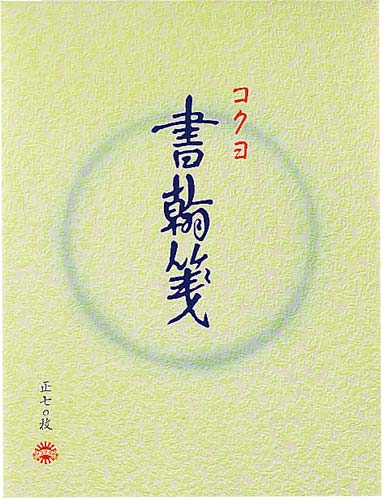 コクヨ
書翰箋
正七〇枚